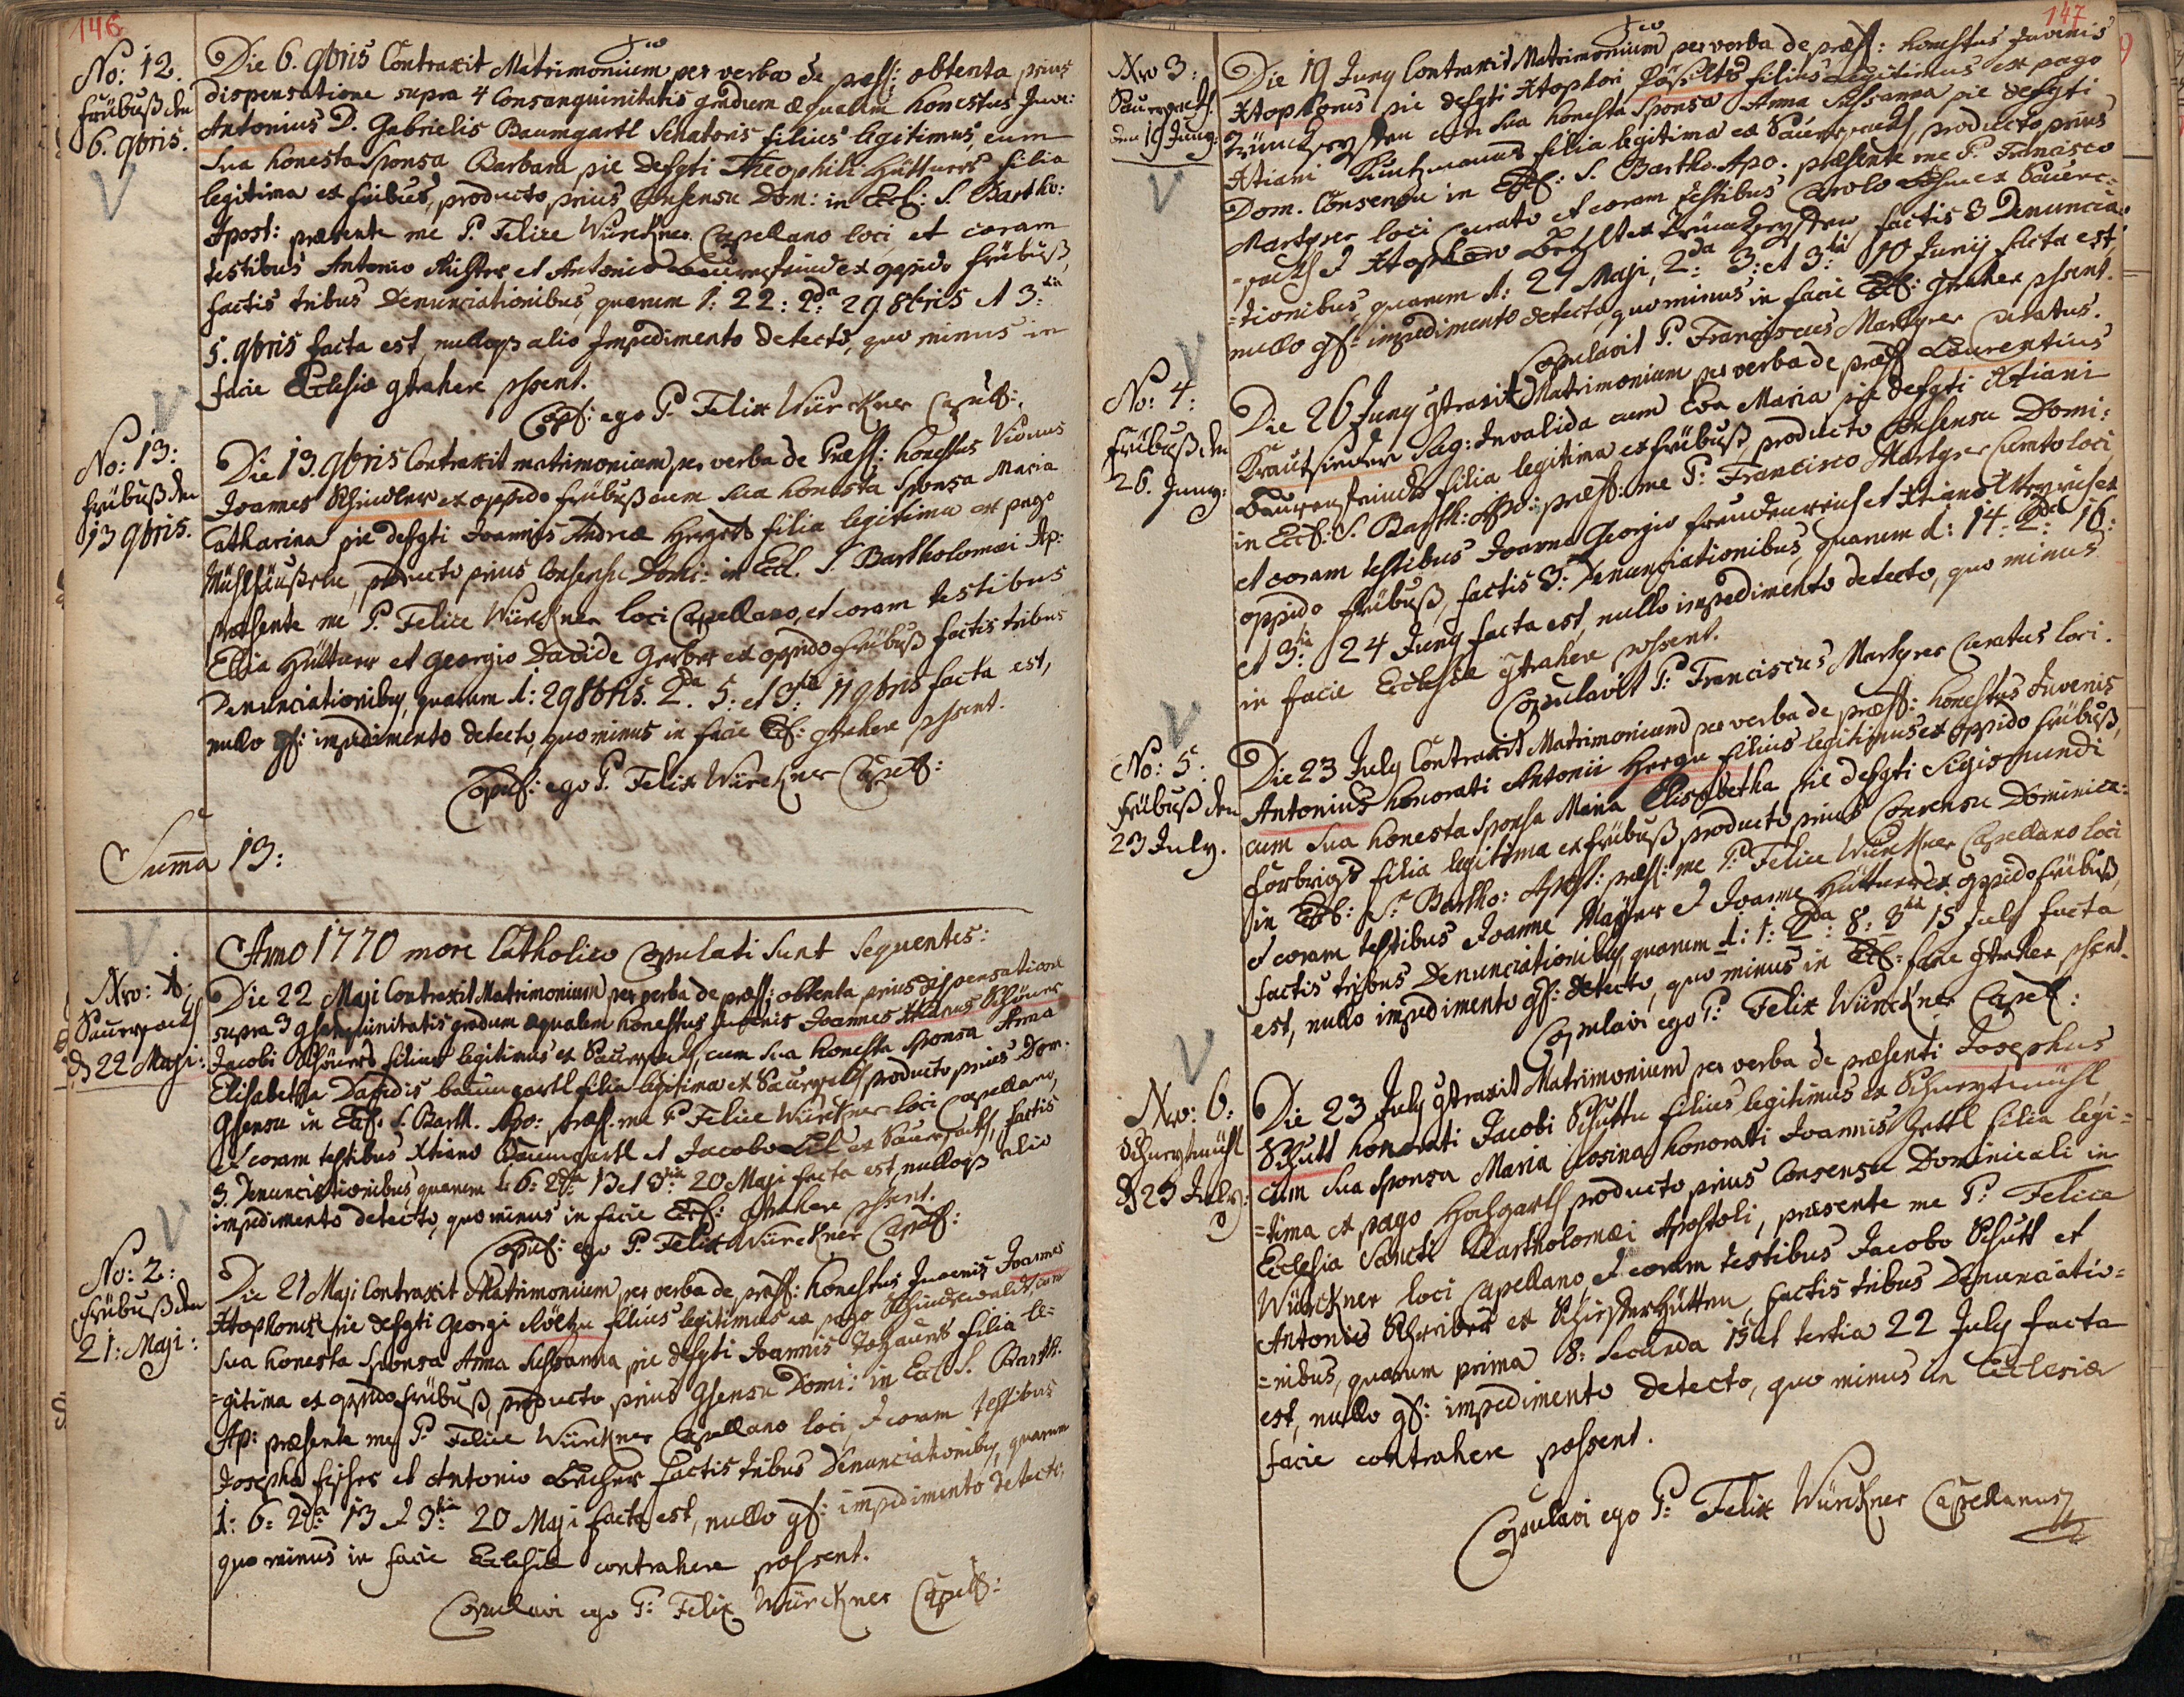 146
No: 12.
Frübuß den
6. 9bris.
Die 6. 9bris Contraxit Matrimonium per verba de præs: obtenta prius
dispensatione supra 4 Consanguinitatis gradum æqualem honestus Juve:
Antonius D. Gabrielis Baumgartl Senatoris filius legitimus, cum
sua honesta Sponsa Barbara pie defgti Theophili Hüttners filia
legitima ex fribus, producto prius Consensu Dom: in Eccl: S. Bartho:
Apost: præsente me P. Felice Würckner Capellano loci et coram
testibus Antonio Richter et Antonio Baurenfeind ex oppido Frübuß,
factis tribus Denunciationibus, quarum 1: 22: 2da 29 8bris et 3tia
5. 9bris facta est, nulloq3 alio Impedimento detecto, quo minus in
facie Ecclesiæ gtrahere pssent.
Cop: ego P. Felix Würckner Capell:
No: 13:
Frübuß den
13 9bris.
Die 13. 9bris Contraxit matrimonium per verba de Præs: honestus Viduus
Joannes Schindler ex oppido Frübuß cum sua honesta Sponsa Maria
Catharina pie defgti Joannis Andreæ Hergets filia legitima ex pago
Mühlhäußeln, producto prius Consensu Domi: in Eccl. S. Bartholomæi Ap:
præsente me P. Felice Würckner loci Capellano, et coram testibus
Elia Hüttner et Georgio Davide Gerber ex oppido Frübuß factis tribus
Denunciationibus, quarum 1: 29 8bris. 2da. 5: et 3tia 11 9bris facta est,
nullo gs: impedimento detecto, quo minus in facie Eccl: gtrahere pssent.
Copul: ego P. Felix Würckner Capell:
Summa 13:
Anno 1770 more Catholico Copulati sunt sequentes:
Nro: 1:
Saursack
d 22 Maji:
Die 22 Maji Contraxit Matrimonium per verba de præs: obtenta prius dispensatione
supra 3 gsanguinitatis gradum æqualem honestus Juvenis Joannes Xtianus Schöner
Jacobi Schöners filius legitimus ex Saursack, cum sua honesta sponsa Anna
Elisabetha Davidis baumgartl filia legitima ex Saursack producto prius Dom.
Gsensu in Eccl. S. Barth. Apo: præs. me P Felice Würckner loci Capellano,
et coram testibus Xtiano Baumgartl et Jacobo ex Saursack, factis
3 Denunciationibus quarum 1: 6: 2da 13 et 3tia 20 Maji facta est nulloq3 alio
impedimento detecto, quo minus in facie Eccl: gtrahere pssent.
Copul: ego P. Felix Würckner Capell:
No: 2:
Frübuß den
21: Maji:
Die 21 Maji Contraxit Matrimonium per verba de præs: honestus Juvenis Joannes
Xtophorus pie defgti Georgi filius legitimus ex pago Schindlwald, cum
sua honesta Sponsa Anna Sussanna pie defgti Joannis filia le=
=gitima ex oppido Frübuß, producto prius Gsensu Domi: in Eccl S. Barth.
Ap: præsente me P. Felice Würckner Capellano loci, et coram testibus
Josepho Fischer et Antonio Lücher factis tribus Denunciationibus, quarum
1: 6: 2da 13 et 3tia 20 Maji facta est, nullo gs: impedimento detecto,
quo minus in facie Ecclesiæ contrahere possent.
Copulavi ego P: Felix Würckner Capell:
147
Nro 3:
Saursack
den 19 Juny:
Die 19 Juny Contraxit Matrimonium per verba de præs: honestus Juvenis
Xtophorus pie defgti Xtophori filius legitimus ex pago
cum sua honesta Sponsa Anna Sussanna pie defgti
Xtiani filia legitima ex Saursack, producto prius
Dom. Consensu in Eccl: S. Bartho. Apo. præsente me P. Francisco
Markgrer loci Curato et coram testibus Carolo ex Sauer=
=sack et Xtophoro factis 3 Denuncia=
=tionibus quarum 1: 27 Maji, 2da 3: et 3tia 10 Junij facta est,
nullo gs: impedimento detecto, quo minus in facie Eccl: gtrahere pssent.
Copulavit P. Franciscus Markgrer Curatus.
No: 4:
Frübuß den
26. Juny:
Die 26 Juny gtraxit Matrimonium per verba de præs: Laurentius
Krautsieder Invalida cum Eva Maria pie defgti Xtiani
Baurenfeinds filia legitima ex Frübuß, producto Consensu Domi:
in Eccl: S. Barth: Apo: præs: me P: Francisco Markgrer Curato loci
et coram testibus Joanne Georgio et Xtiano ex
oppido Frübuß, factis 3: Denunciationibus, quarum 1: 14 2da 16:
et 3tia 24 Juny facta est, nullo impedimento detecto, quo minus
in facie Ecclesiæ gtrahere possent.
Copulavit P: Franciscus Markgrer Curatus loci.
No: 5:
Frübuß den
23 July.
Die 23 July Contraxit Matrimonium per verba de præs: honestus Juvenis
Antonius honorati Antonii filius legitimus ex oppido Frübuß,
cum sua honesta Sponsa Maria Elisabetha pie defgti Sigismundi
Forbrigs filia legitima ex Frübuß producto prius Consensu Dominica:
in Eccl: S. Bartho: Apost: præs: me P: Felice Würckner Capellano loci
et coram testibus Joanne Mayer et Joanne Hüttner ex oppido Frübuß,
factis tribus Denunciationibus, quarum 1: 1: 2da: 8: 3tia 15 July facta
est, nullo impedimento gs: detecto, quo minus in Eccl: facie gtraher pssent.
Copulavi ego P: Felix Würckner Capell:
Nro: 6:
d 23 July:
Die 23 July gtraxit Matrimonium per verba de præsenti Josephus
Schutt honorati Jacobi Schutts filius legitimus ex
cum sua Sponsa Maria Rosina honorati Joannis filia legi=
=tima ex pago Hochgarth producto prius Consensu Dominicali in
Ecclesia Sancti Bartholomæi Apostoli, præsente me P: Felice
Würckner loci Capellano, et coram testibus Jacobo Schutt et
Antonio Schreiber ex factis tribus Denunciatio=
=nibus, quarum prima 8: Secunda 15 et tertia 22 July facta
est, nullo gs: impedimento detecto, quo minus in Ecclesiæ
facie contrahere possent.
Copulavi ego P: Felix Würckner Capellanus